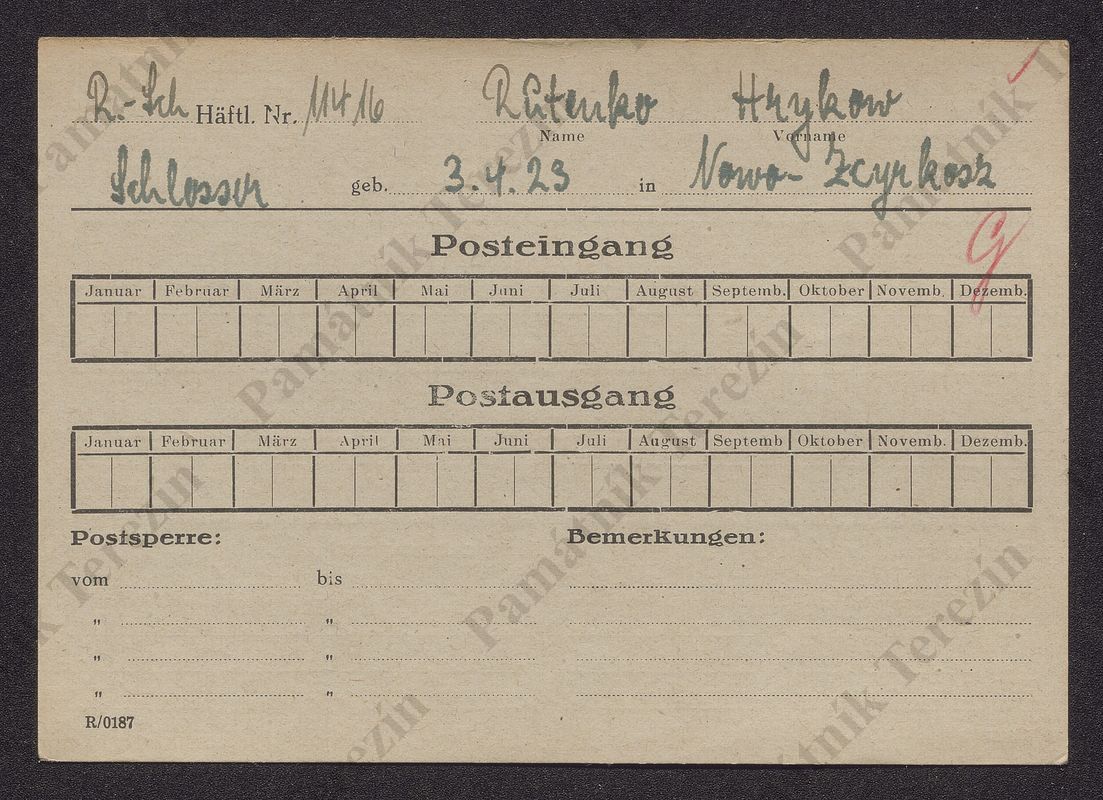 R.-Sch Häftl. Nr. 11416 Rutenko Hrykow
Name Vorname
Schlosser geb. 3.4.23 in Nowo-Zcyrkosz
Posteingang
G
Januar Februar März April Mai Juni Juli August Septemb. Oktober Novemb. Dezemb.
Postausgang
Januar Februar März April Mai Juni Juli August Septemb Oktober Novemb. Dezemb.
Postsperre: Bemerkungen:
vom bis
" "
" "
" "
R/0187
Památník Terezín